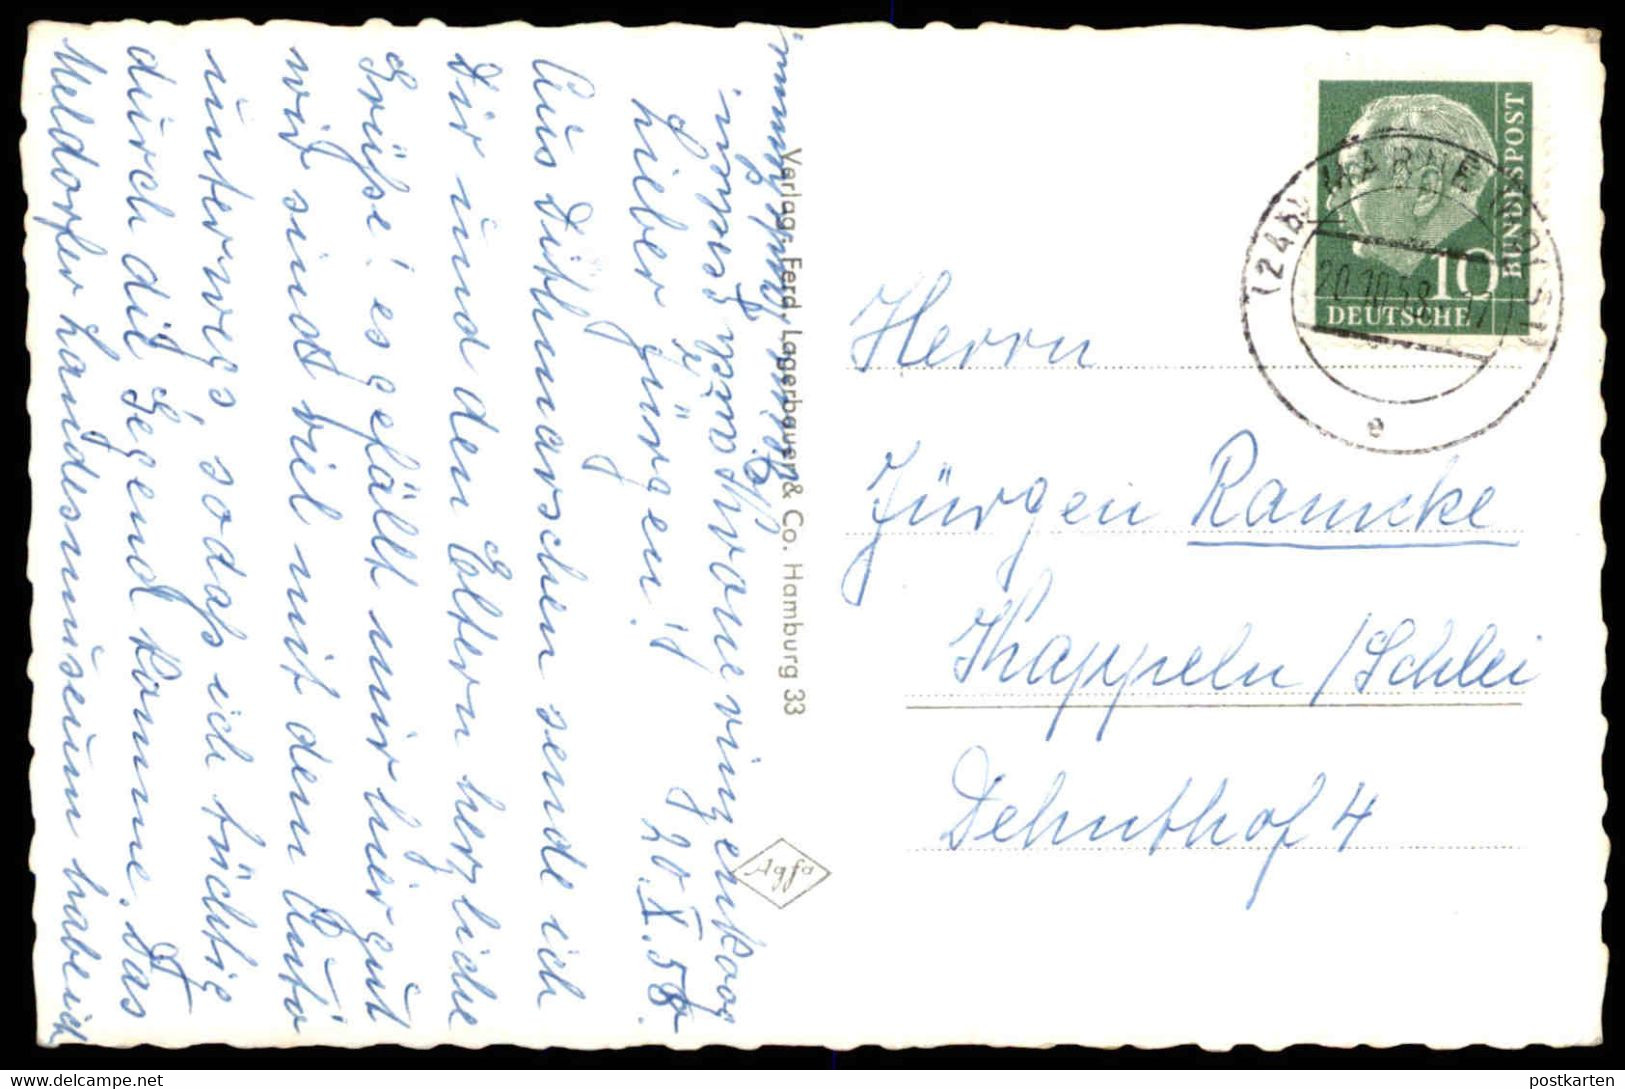 Lieber Jürgen! 20.X.58.
Aus Dithmarschen sende ich
Dir und den Eltern herzliche
Grüße! es gefällt mir hier gut
wir sind viel mit dem Auto
unterwegs, sodaß ich tüchtig
durch die Gegend komme. Das
Meldorfer Landesmuseum habe ich
Verlag: Ferd. Lagerbauer & Co. Hamburg 33
Agfa
DEUTSCHE
BUNDESPOST
10
(24b) MARNE (HOLST)
20.10.58
e
Herrn
Jürgen Ramcke
Kappeln / Schlei
Dehnthof 4
postkarten